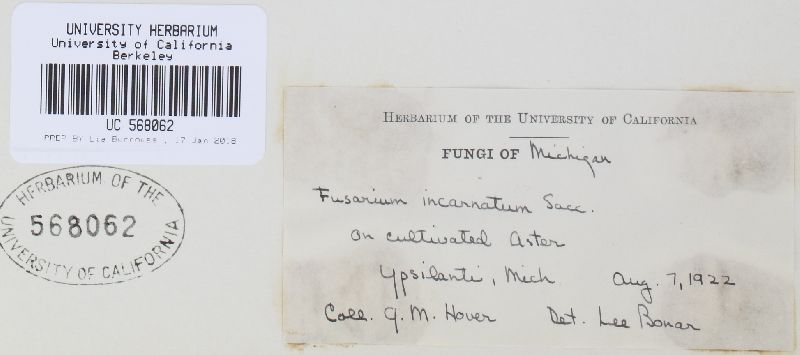 UNIVERSITY HERBARIUM
University of California
Berkeley
UC 568062
PREP BY Lia Burrowes, 17 Jan 2018
HERBARIUM OF THE
568062
UNIVERSITY OF CALIFORNIA
HERBARIUM OF THE UNIVERSITY OF CALIFORNIA
FUNGI OF Michigan
Fusarium incarnatum Sacc.
on cultivated Aster
Ypsilanti, Mich Aug. 7, 1922
Coll. G. M. Hover Det. Lee Bonar